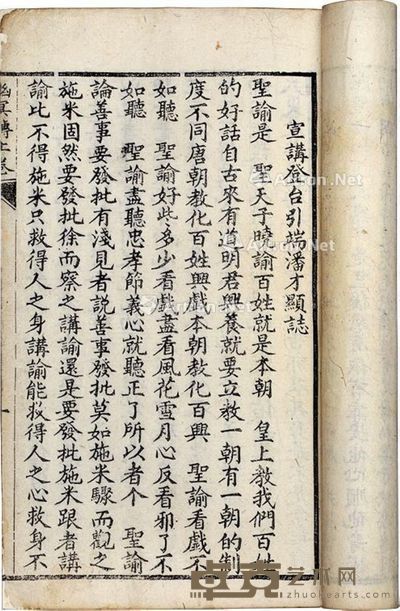 宣講登台引端潘才顯誌
聖諭是　聖天子曉諭百姓就是本朝　皇上教我們百姓
的好話自古來有道明君興養就要立教一朝有一朝的制
度不同唐朝教化百姓興戲本朝教化百興　聖諭看戲不
如聽　聖諭好些多少看戲盡看風花雪月心反看邪了不
如聽　聖諭盡聽忠孝節義心就聽正了所以者个　聖諭
論善事要發批有淺見者說善事發批莫如施米驟而觀之
施米固然要發批徐而察之講諭還是要發批施米跟者講
諭比不得施米只救得人之身講諭能救得人之心救身不
幽冥傳上卷
一
卓克艺术网
zhuokearts.com